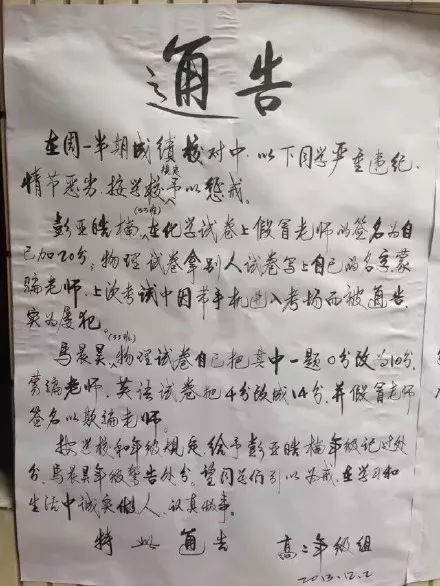 通告
在周一半期成绩核对中,以下同学严重违纪,
情节恶劣,按学校规定予以惩戒。
彭亚皓楠(33班),在化学试卷上假冒老师的签名为自
己加20分,物理试卷拿别人试卷写上自己的名字,蒙
骗老师,上次考试中因带手机进入考场而被通告,
实为屡犯。
马晨昊(33班),物理试卷自己把其中一题0分改为10分,
蒙骗老师,英语试卷把4分改成14分,并假冒老师
签名以欺骗老师。
按学校和年级规定,给予彭亚皓楠年级记过处
分,马晨昊年级警告处分,望同学们引以为戒,在学习和
生活中诚实做人,认真做事。
特此通告
高二年级组
2013.12.2